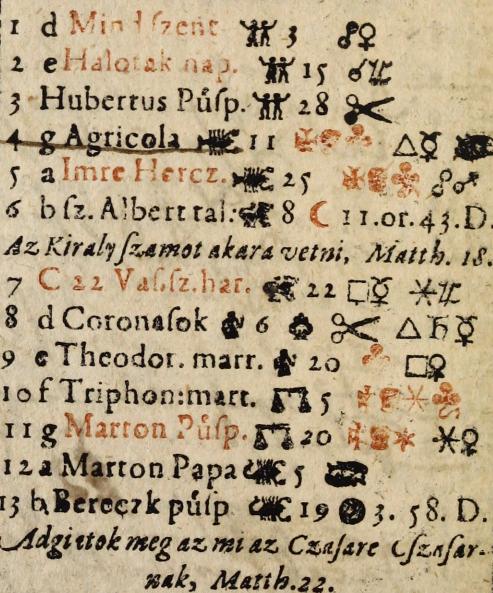 1 d Mind szent ♊ 3 ☍♀
2 e Halottak nap. ♊ 15 ☌♃
3 Hubertus Púſp. ♊ 28
4 g Agricola ♋ 11 △☿
5 a Imre Hercz. ♋ 25 ☍♂
6 b ſz. Albert tal: ♌ 8 ☾ 11.or.43.D.
Az Kiraly ſzamot akara vetni, Matth. 18.
7 C 22 Vaſ.sz.har. ♌ 22 □☿ ⚹♃
8 d Coronaſok ♍ 6 △♄☿
9 e Theodor. marr. ♍ 20 □♀
10 f Triphon:mart. ♎ 5
11 g Marton Púſp. ♎ 20 ⚹♀
12 a Marton Papa ♏ 5
13 b Bereczk púſp ♏ 19 3. 58. D.
Adgiatok meg az mi az Czaſare Cſzaſar-
nak, Matth.22.